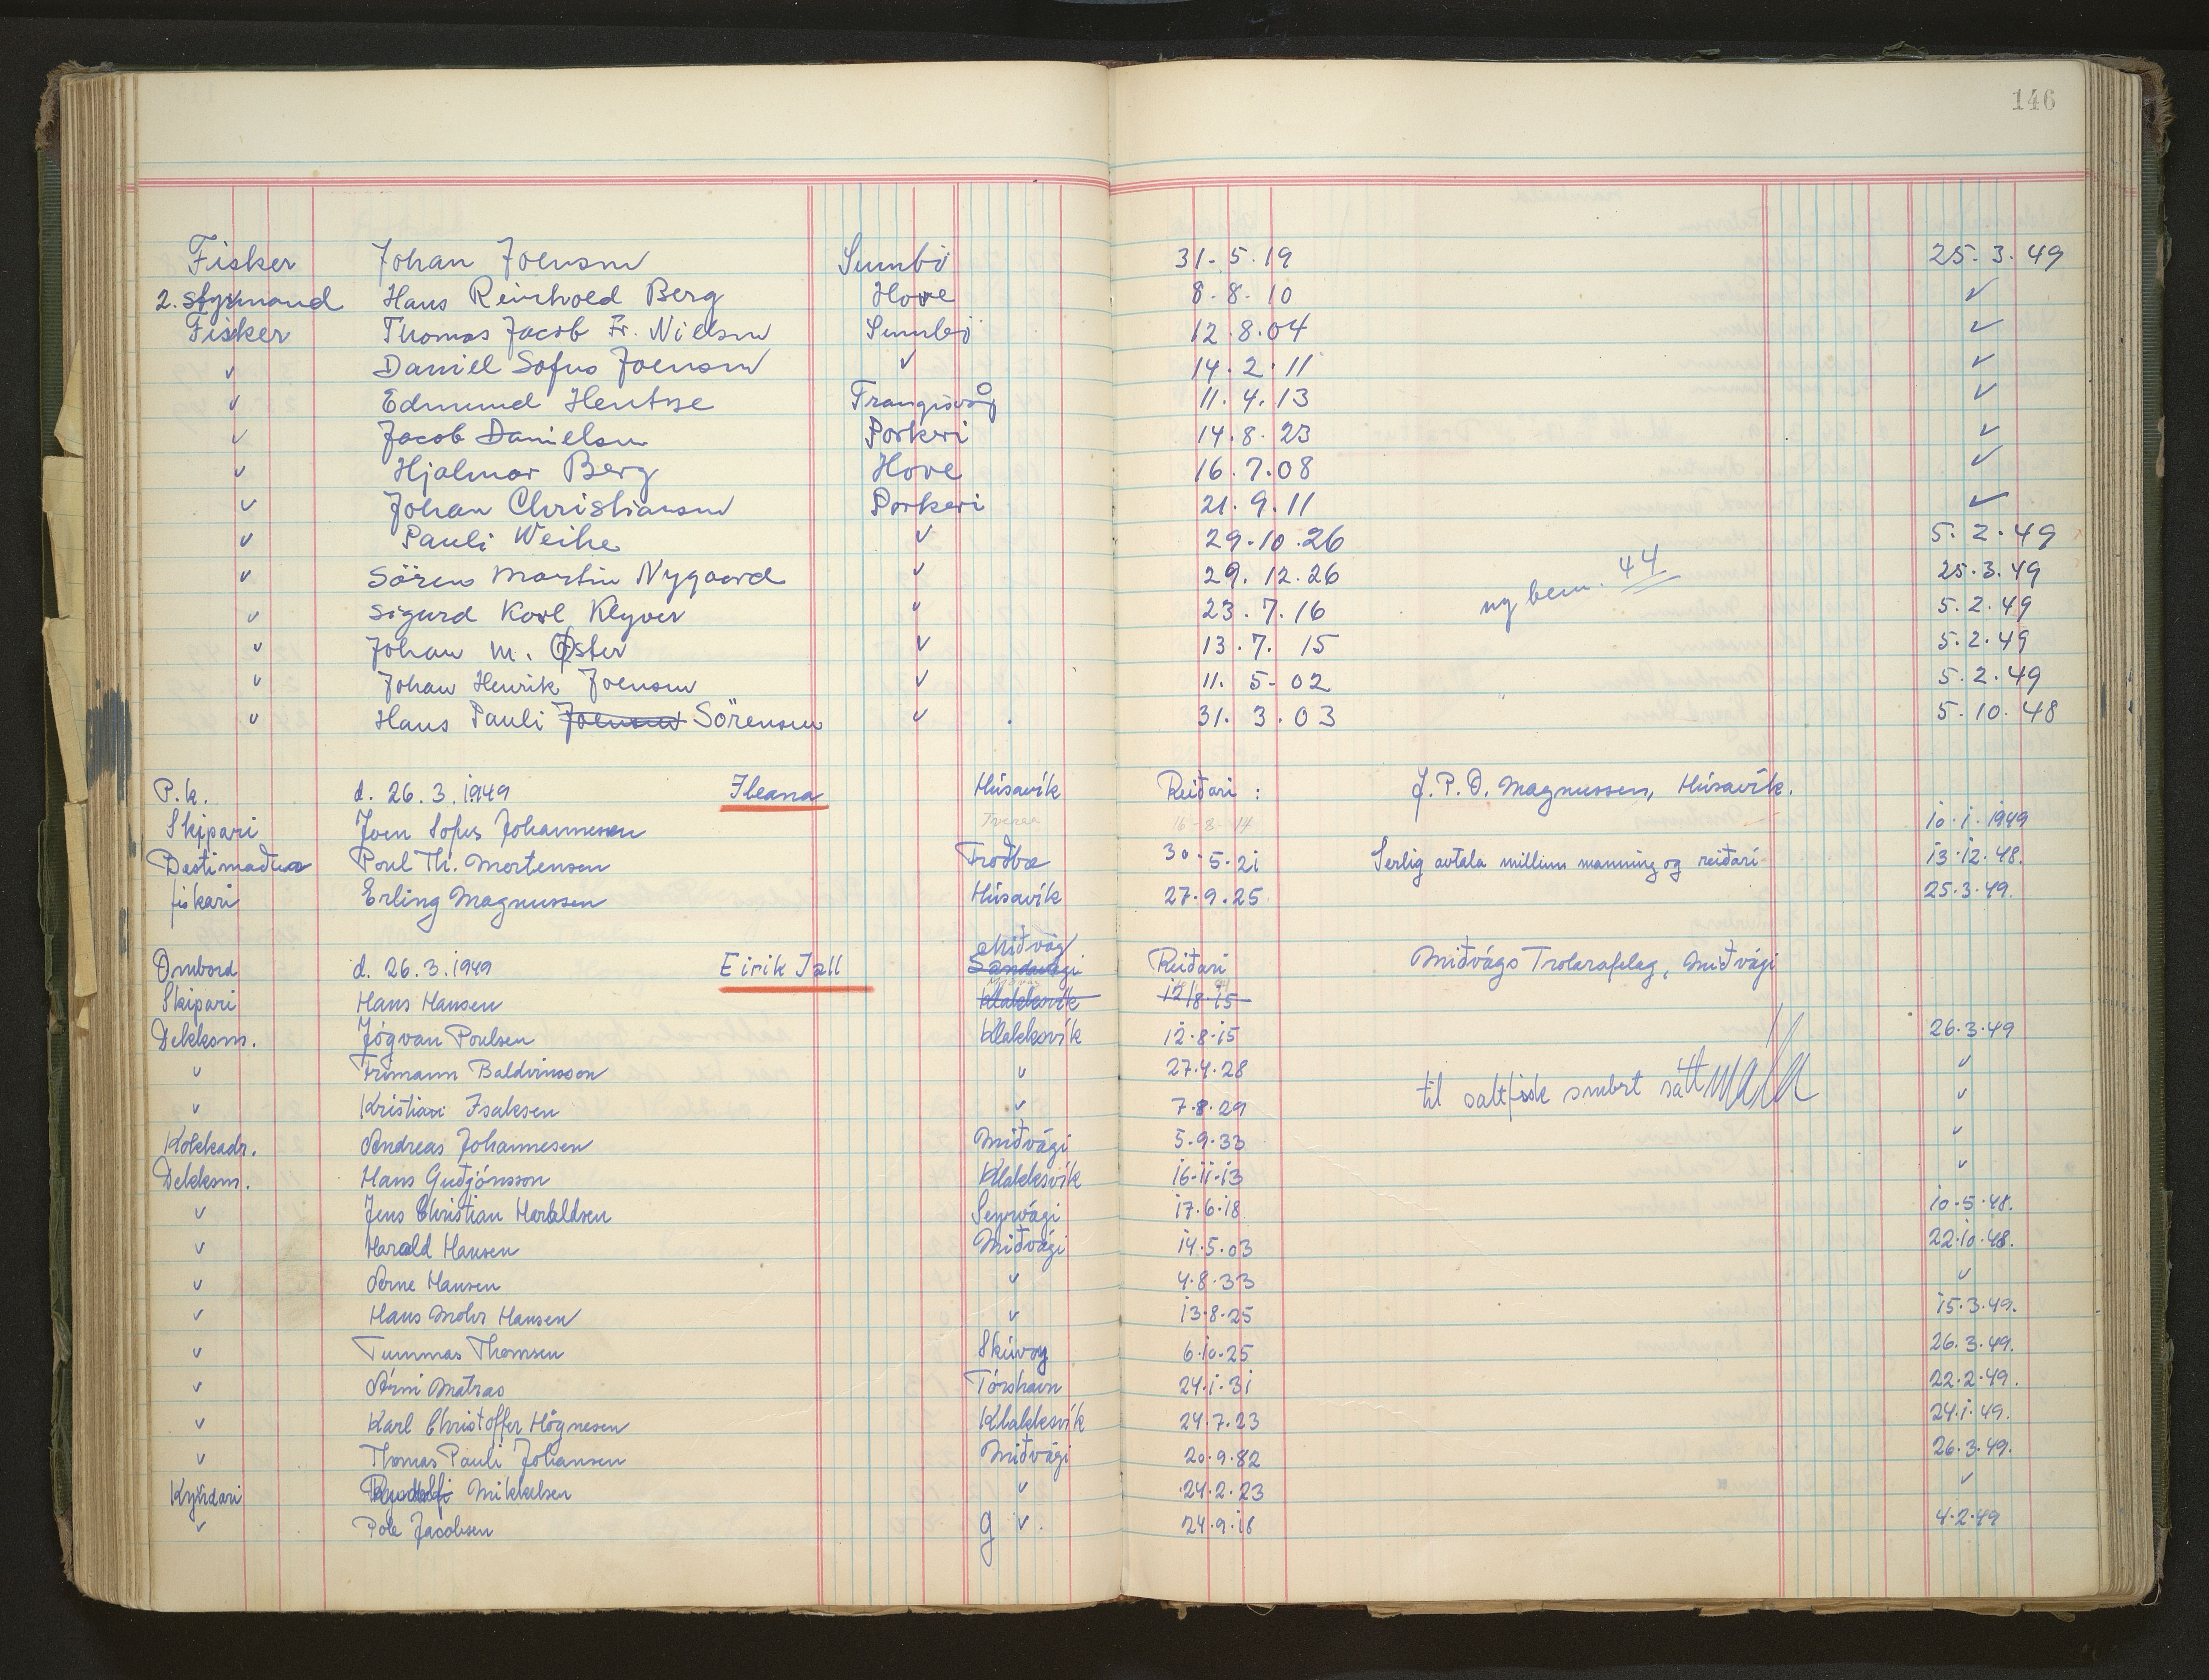 146
Fisker Johan Joensen Sumbö 31-5-19 25.3.49
2. styrmand Hans Reinhold Berg Hove 8-8-10 ✓
Fisker Thomas Jacob Fr. Nielsen Sumbö 12.8.04 ✓
✓ Daniel Sofus Joensen ✓ 14.2.11 ✓
✓ Edmund Hentze Trangisvåg 11.4.13 ✓
✓ Jacob Danielsen Porkeri 14.8.23 ✓
✓ Hjalmar Berg Hove 16.7.08 ✓
✓ Johan Christiansen Porkeri 21.9.11 ✓
✓ Pauli Weihe ✓ 29.10.26 5.2.49
✓ Sören Martin Nygaard ✓ 29.12.26 ny bem. 44 25.3.49
✓ Sigurd Karl Klyver ✓ 23.7.16 5.2.49
✓ Johan M. Øster ✓ 13.7.15 5.2.49
✓ Johan Henrik Joensen ✓ 11.5-02 5.2.49
✓ Hans Pauli Joensen Sörensen ✓ 31.3.03 5.10.48
P.k. d. 26.3.1949 Ileana Húsavík Reiðari: J. P. D. Magnussen, Húsavík.
Skipari Joen Sofus Johannesen Tveraa 16-8-14 10.1.1949
Bestimaður Poul Th. Mortensen Froðba 30.5.21 Serlig avtala millum manning og reiðari 13.12.48.
fiskari Erling Magnussen Húsavík 27.9.25 25.3.49.
Miðvág
Ombord d. 26.3.1949 Eirik Jall Sandavági Reiðari Miðvágs Trolarafelag, Miðvági
Skipari Hans Hansen Klakksvík 12/8-15
Dekksm. Jógvan Poulsen Klakksvík 12.8.15 26.3.49
✓ Frimann Baldvinsson ✓ 27.4.28 ✓
✓ Kristian Isaksen ✓ 7.8.29 til saltfisk smbrt sáttmála ✓
Kokkadr. Andreas Johannesen Miðvági 5.9.33 ✓
Dekksm. Hans Guðjónsson Klakksvík 16-11-13 ✓
✓ Jens Christian Haraldsen Seyrvági 17.6.18 10.5.48.
✓ Harald Hansen Miðvági 14.5.03 22.10.48.
✓ Arne Hansen ✓ 4.8.33 ✓
✓ Hans Mohr Hansen ✓ 13.8.25 15.3.49.
✓ Tummas Thomsen Skúvoy 6.10.25 26.3.49.
✓ Árni Matras Tórshavn 24.1.31 22.2.49.
✓ Karl Christoffer Høgnesen Klakksvík 24.7.23 24.1.49.
✓ Thomas Pauli Johansen Miðvági 20.9.82 26.3.49.
Kyndari Mikkelsen ✓ 24.2.23 ✓
✓ Pole Jacobsen g ✓ 24.9.18 4.2.49